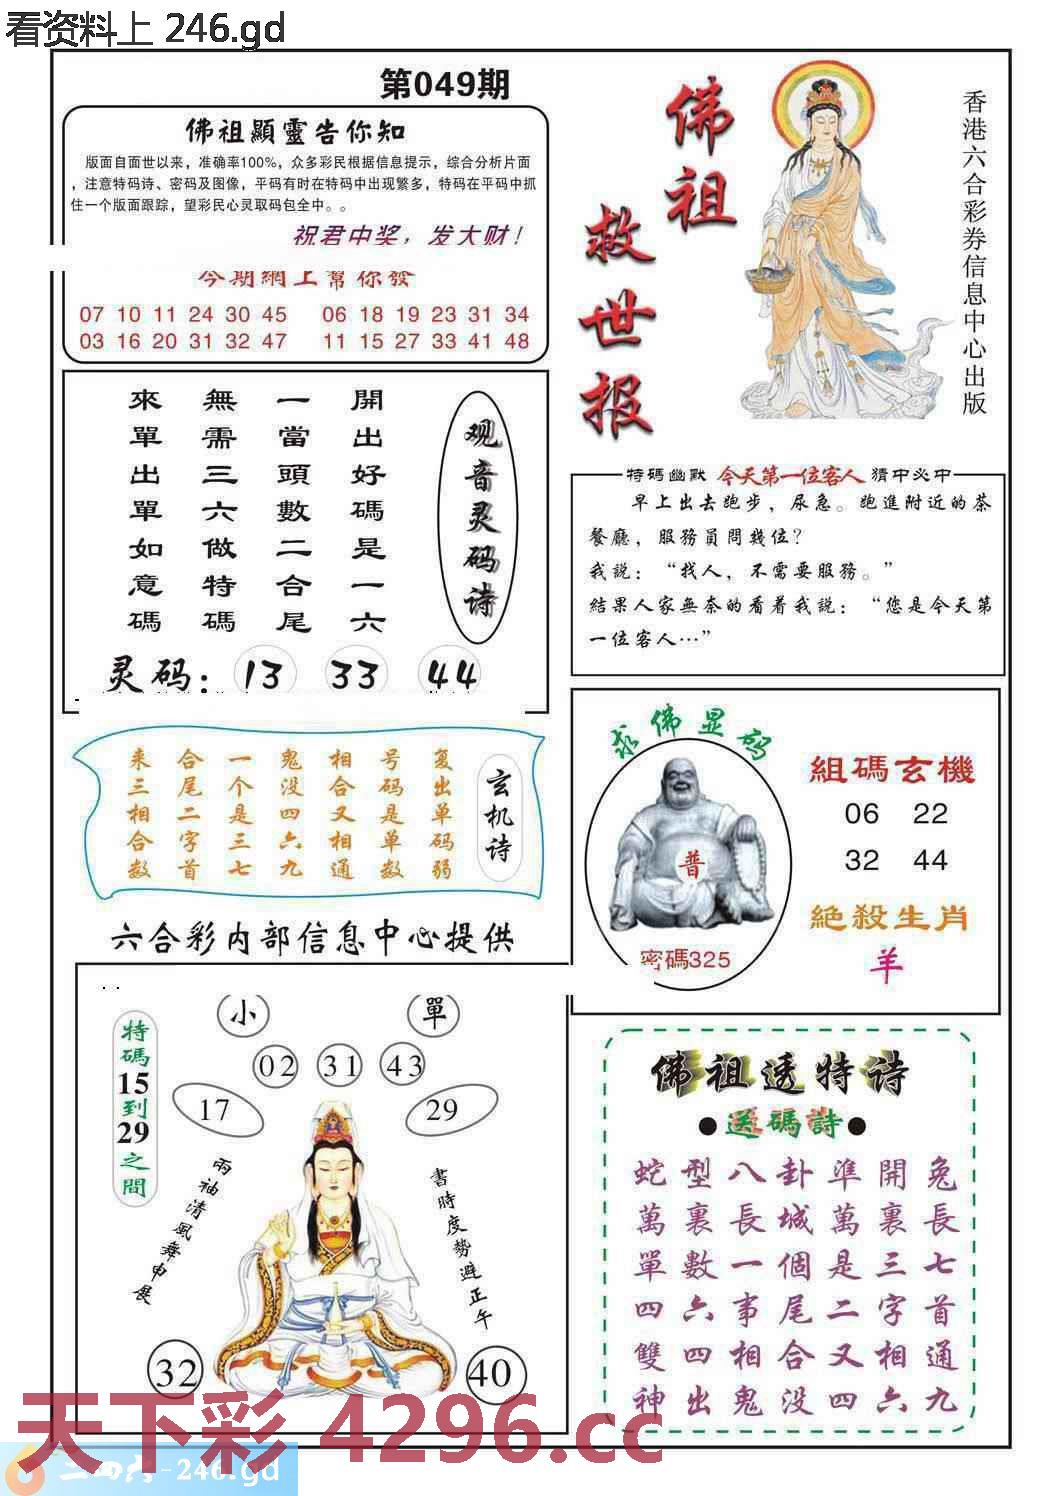 看资料上 246.gd
第049期
佛祖顯靈告你知
版面自面世以来，准确率100%，众多彩民根据信息提示，综合分析片面
，注意特码诗、密码及图像，平码有时在特码中出现繁多，特码在平码中抓
住一个版面跟踪，望彩民心灵取码包全中。。
祝君中奖，发大财！
今期網上幫你發
07 10 11 24 30 45 06 18 19 23 31 34
03 16 20 31 32 47 11 15 27 33 41 48
佛祖
救世报
香港六合彩券信息中心出版
观音灵码诗
開出好碼是一六
一當頭數二合尾
無需三六做特碼
來單出單如意碼
灵码：13 33 44
特碼幽默 今天第一位客人 猜中必中
早上出去跑步，尿急。跑進附近的茶
餐廳，服務員問幾位？
我説：“找人，不需要服務。”
結果人家無奈的看着我説：“您是今天第
一位客人…”
玄机诗
复出单码弱
号码是单数
相合又相通
鬼没四六九
一个是三七
合尾二字首
来三相合数
求佛显码
普
密碼325
組碼玄機
06 22
32 44
絶殺生肖
羊
六合彩内部信息中心提供
特碼15到29之間
小 單
02 31 43
17 29
兩袖清風舞中展
書時度勢避正午
32 40
佛祖透特诗
●送碼詩●
蛇型八卦準開兔
萬裏長城萬裏長
單數一個是三七
四六事尾二字首
雙四相合又相通
神出鬼没四六九
天下彩 4296.cc
二四六-246.gd